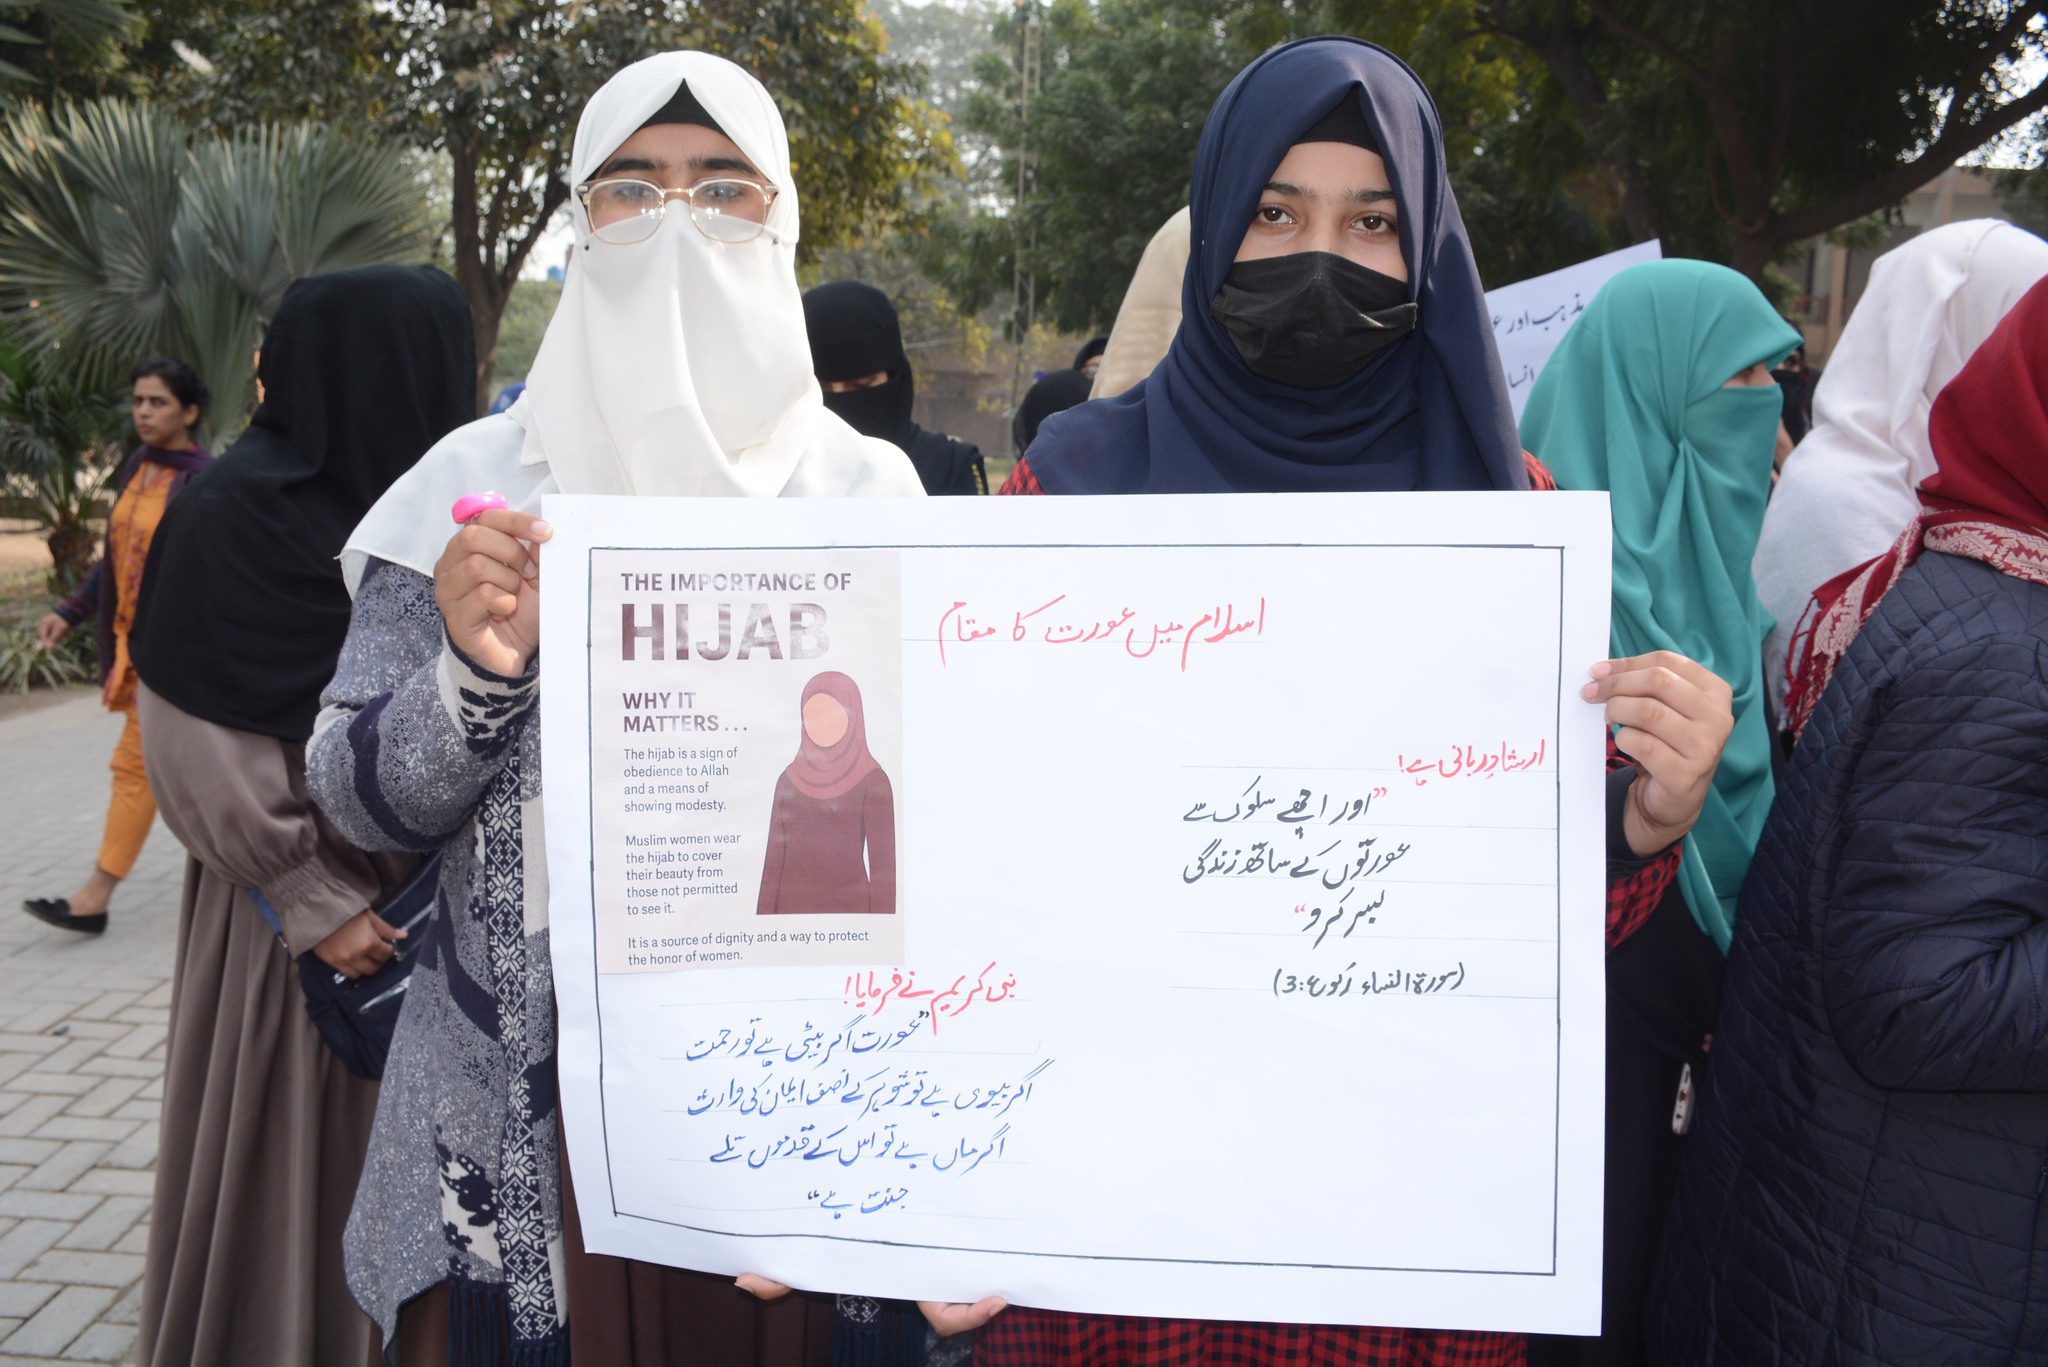 THE IMPORTANCE OF
HIJAB
WHY IT
MATTERS...
The hijab is a sign of
obedience to Allah
and a means of
showing modesty.
Muslim women wear
the hijab to cover
their beauty from
those not permitted
to see it.
It is a source of dignity and a way to protect
the honor of women.
اسلام میں عورت کا مقام
ارشادِ ربانی ہے!
"اور اچھے سلوک سے
عورتوں کے ساتھ زندگی
بسر کرو"
(سورۃ النساء رکوع:3)
نبی کریم نے فرمایا!
"عورت اگر بیٹی ہے تو رحمت
اگر بیوی ہے تو شوہر کے نصف ایمان کی وارث
اگر ماں ہے تو اس کے قدموں تلے
جنت ہے"
مذہب اور